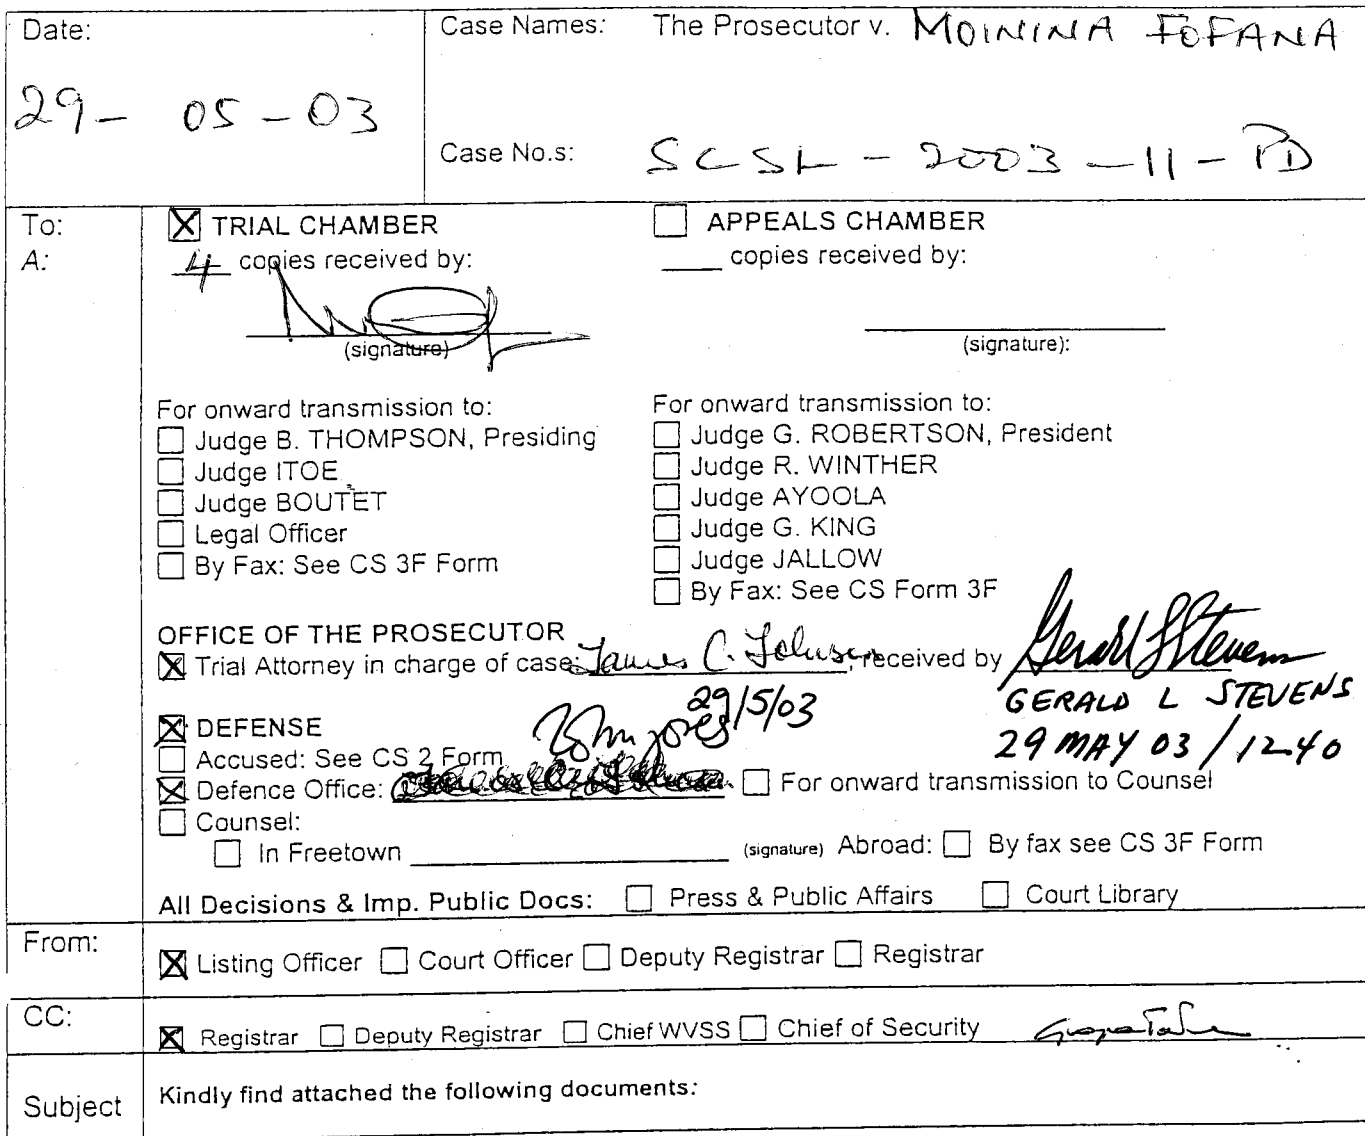 Date:
29- 05-03
Case Names: The Prosecutor v. MOININA FOFANA
Case No.s: SCSL-2003-11-PD
To:
A:
TRIAL CHAMBER
4 copies received by:
(signature)
For onward transmission to:
Judge B. THOMPSON, Presiding
Judge ITOE
Judge BOUTET
Legal Officer
By Fax: See CS 3F Form
APPEALS CHAMBER
____ copies received by:
(signature):
For onward transmission to:
Judge G. ROBERTSON, President
Judge R. WINTHER
Judge AYOOLA
Judge G. KING
Judge JALLOW
By Fax: See CS Form 3F
OFFICE OF THE PROSECUTOR
Trial Attorney in charge of case: James C. Johnson, received by Gerald L Stevens
GERALD L STEVENS
29 MAY 03 / 1240
DEFENSE
29/5/03
Accused: See CS 2 Form
Defence Office: For onward transmission to Counsel
Counsel:
In Freetown (signature) Abroad: By fax see CS 3F Form
All Decisions & Imp. Public Docs: Press & Public Affairs Court Library
From: Listing Officer Court Officer Deputy Registrar Registrar
CC: Registrar Deputy Registrar Chief WVSS Chief of Security
Subject Kindly find attached the following documents: